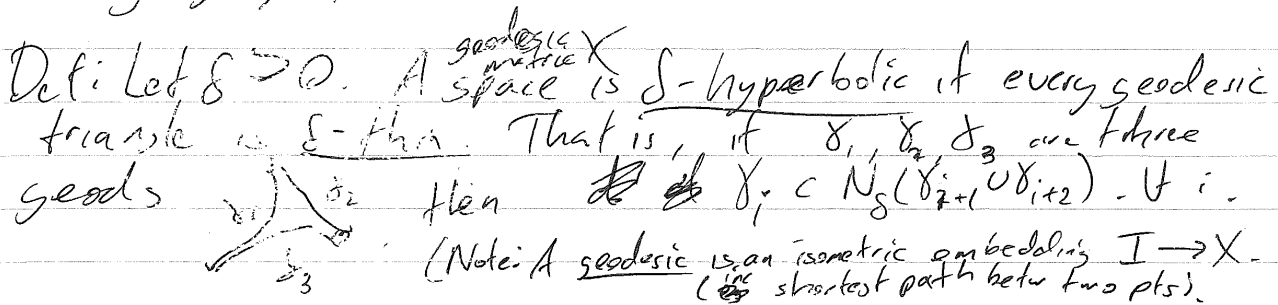 Def: Let δ > 0. A geodesic metric space X is δ-hyperbolic if every geodesic
triangle is δ-thin. That is, if γ₁, γ₂, γ₃ are three
geods γ₁ γ₂ γ₃ then γᵢ ⊂ N_δ(γᵢ₊₁ ∪ γᵢ₊₂). ∀ i.
(Note: A geodesic is an isometric embedding I → X.
(ie shortest path betw two pts).